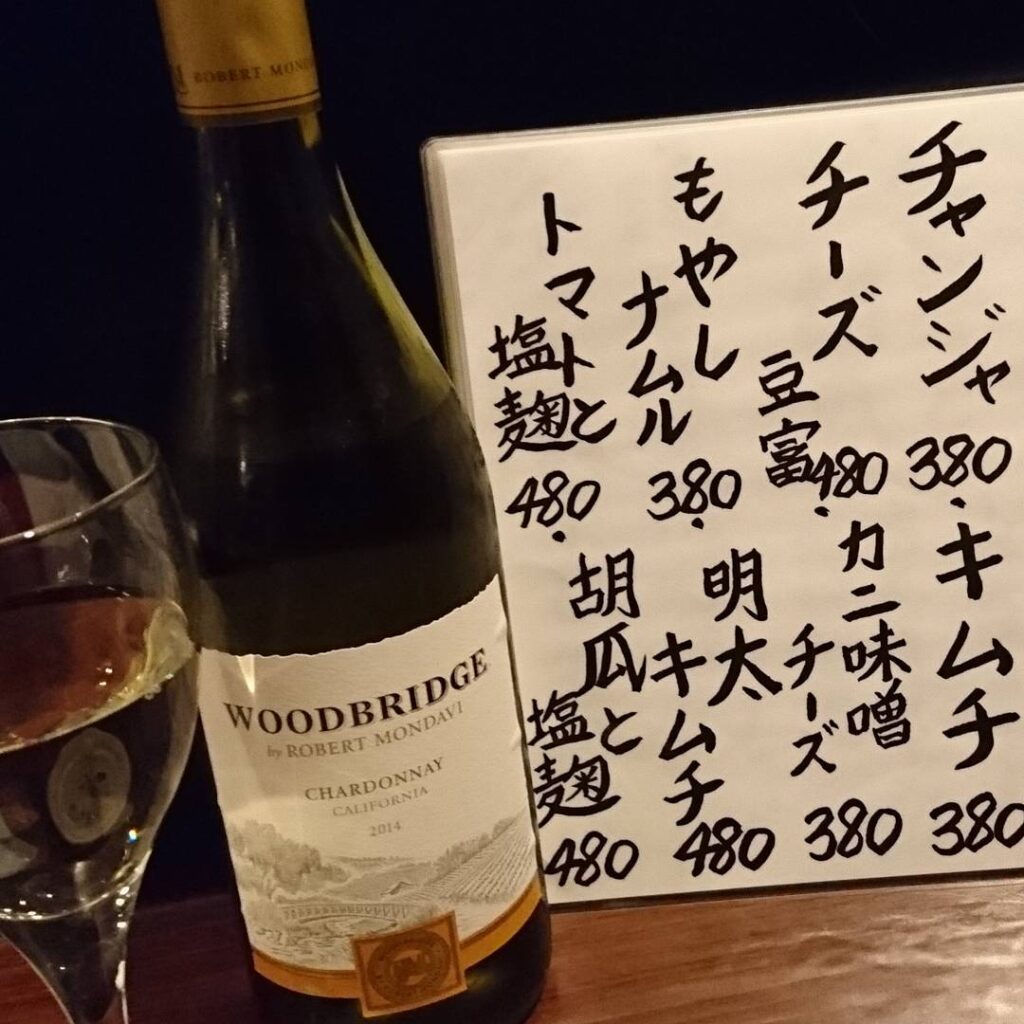 ROBERT MOND
WOODBRIDGE
by ROBERT MONDAVI
CHARDONNAY
CALIFORNIA
2014
チャンジャ
380
・キムチ
380
チーズ
豆富
480
・カニ味噌
チーズ
380
もやし
ナムル
380
・明太
キムチ
480
トマトと
塩麹
480
・胡瓜と
塩麹
480